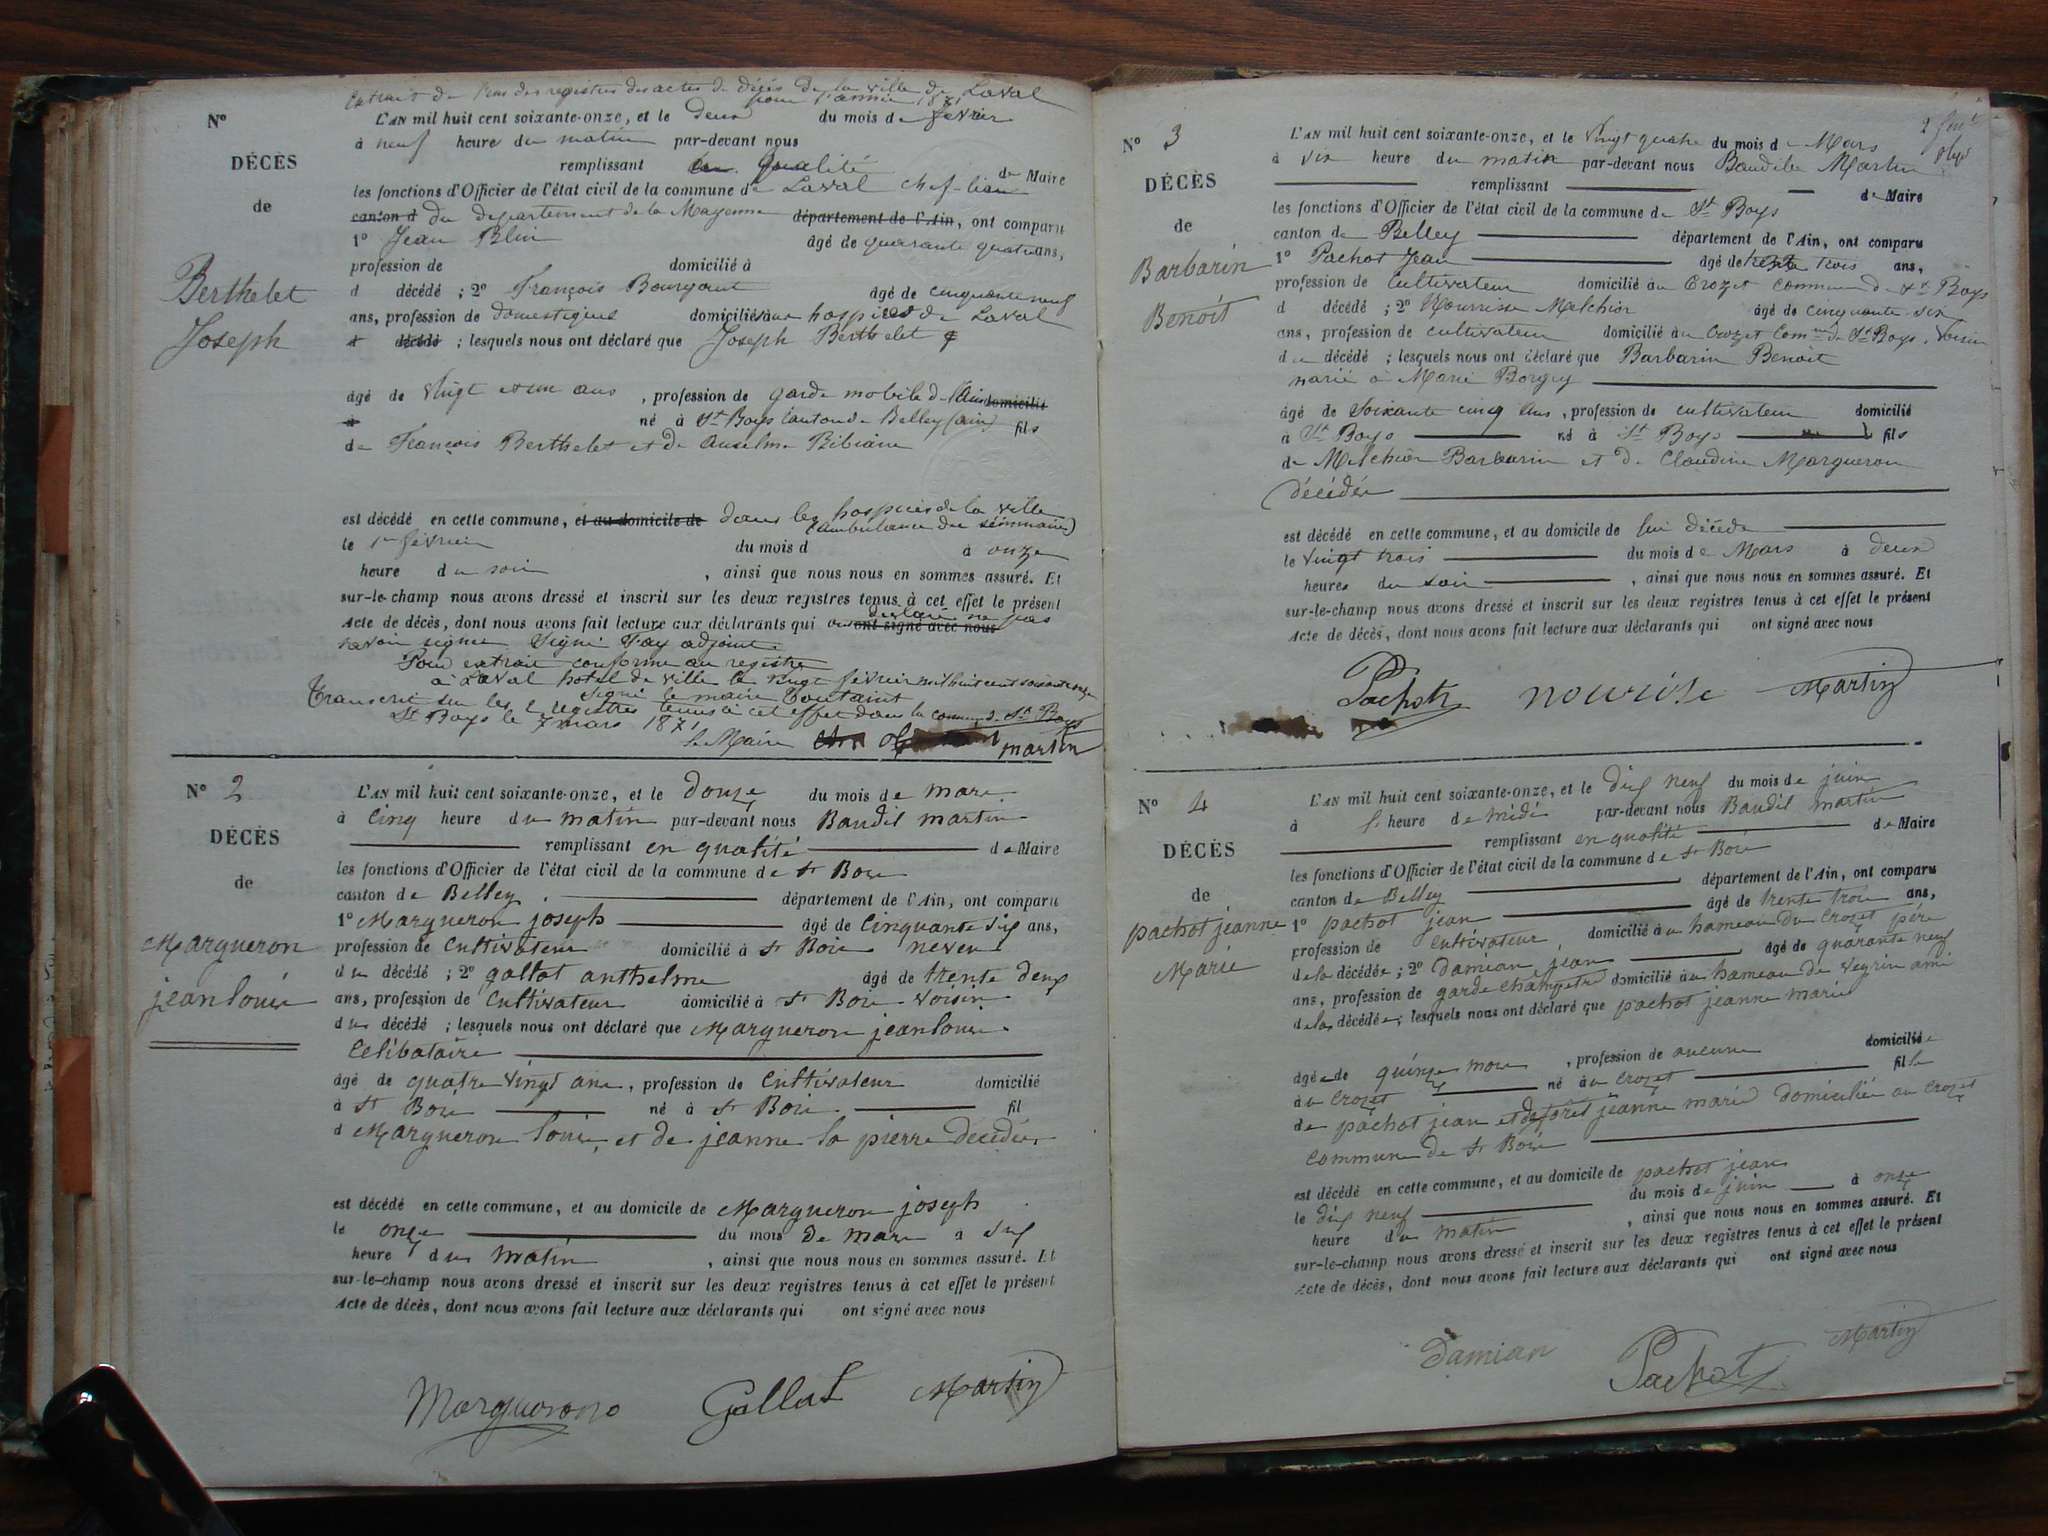 Extrait de l'un des registres des actes de décès de la ville de Laval
pour l'année 1871
N°
DÉCÈS
de
Berthelet
Joseph
L'AN mil huit cent soixante-onze, et le deux du mois de février
à neuf heure du matin par-devant nous
remplissant en qualité de Maire
les fonctions d'Officier de l'état civil de la commune de Laval chef-lieu
canton d du département de la Mayenne département de l'Ain, ont comparu
1° Jean Blin âgé de quarante quatre ans,
profession de domicilié à
d décédé ; 2° François Bourgault âgé de cinquante neuf
ans, profession de domestiques domiciliés aux hospices de Laval
d décédé ; lesquels nous ont déclaré que Joseph Berthelet
âgé de vingt et un ans, profession de garde mobile de l'Ain domicilié
à né à St Boys canton de Belley (ain) fils
de François Berthelet et de Anselme Bibiane
est décédé en cette commune, et au domicile de dans les hospices de la ville
(ambulance du séminaire)
le 1er février du mois d à onze
heure du soir, ainsi que nous nous en sommes assuré. Et
sur-le-champ nous avons dressé et inscrit sur les deux registres tenus à cet effet le présent
Acte de décès, dont nous avons fait lecture aux déclarants qui ont déclaré ne pas ont signé avec nous
savoir signer Signé Fay adjoint
Pour extrait conforme au registre
à Laval hotel de ville le vingt février mil huit cent soixante onze
signé le maire Toutaint
Transcrit sur les 2 registres tenus à cet effet dans la commune de St Boys
St Boys le 7 mars 1871
le Maire Martin
N° 2
DÉCÈS
de
Margueron
jean louis
L'AN mil huit cent soixante-onze, et le douze du mois de mars
à cinq heure du matin par-devant nous Baudil martin
remplissant en qualité de Maire
les fonctions d'Officier de l'état civil de la commune de St Bois
canton de Belley département de l'Ain, ont comparu
1° Margueron joseph âgé de cinquante six ans,
profession de cultivateur domicilié à St Bois neveu
du décédé ; 2° gallat anthelme âgé de trente deux
ans, profession de cultivateur domicilié à St Bois voisin
du décédé ; lesquels nous ont déclaré que Margueron jean louis
celibataire
âgé de quatre vingt ans, profession de cultivateur domicilié
à St Bois né à St Bois fil
d Margueron louis et de jeanne la pierre décédés
est décédé en cette commune, et au domicile de Margueron joseph
le onze du mois de mars à six
heure du matin, ainsi que nous nous en sommes assuré. Et
sur-le-champ nous avons dressé et inscrit sur les deux registres tenus à cet effet le présent
Acte de décès, dont nous avons fait lecture aux déclarants qui ont signé avec nous
Margueron Gallat Martin
N° 3
DÉCÈS
de
Barbarin
Benoit
L'AN mil huit cent soixante-onze, et le vingt quatre du mois de Mars
à six heure du matin par-devant nous Baudile Martin
remplissant de Maire
les fonctions d'Officier de l'état civil de la commune de St Boys
canton de Belley département de l'Ain, ont comparu
1° Pachot Jean âgé de trente trois ans,
profession de cultivateur domicilié au Crozet commune de St Boys
d décédé ; 2° Nourrisse Melchior âgé de cinquante six
ans, profession de cultivateur domicilié au Crozet comne de St Boys, voisin
du décédé ; lesquels nous ont déclaré que Barbarin Benoit
marié à Marie Borgey
âgé de soixante cinq ans, profession de cultivateur domicilié
à St Boys né à St Boys fils
de Melchior Barbarin et de Claudine Margueron
décédés
est décédé en cette commune, et au domicile de lui décédé
le vingt trois du mois de Mars à deux
heures du soir, ainsi que nous nous en sommes assuré. Et
sur-le-champ nous avons dressé et inscrit sur les deux registres tenus à cet effet le présent
Acte de décès, dont nous avons fait lecture aux déclarants qui ont signé avec nous
Pachot nourise Martin
N° 4
DÉCÈS
de
pachot jeanne
Marie
L'AN mil huit cent soixante-onze, et le dix neuf du mois de juin
à heure de midi par-devant nous Baudil martin
remplissant en qualité de Maire
les fonctions d'Officier de l'état civil de la commune de St Bois
canton de Belley département de l'Ain, ont comparu
1° pachot jean âgé de trente trois ans,
profession de cultivateur, domicilié au hameau du Crozet père
de la décédée ; 2° Damian jean âgé de quarante neuf
ans, profession de garde champetre domicilié au hameau de veyrin ami
de la décédée ; lesquels nous ont déclaré que pachot jeanne marie
âgée de quinze mois, profession de aucune domiciliée
au crozet né au crozet fille
de pachot jean et de foret jeanne marie domiciliés au crozet
commune de St Bois
est décédé en cette commune, et au domicile de pachot jean
le dix neuf du mois de juin à onze
heure du matin, ainsi que nous nous en sommes assuré. Et
sur-le-champ nous avons dressé et inscrit sur les deux registres tenus à cet effet le présent
Acte de décès, dont nous avons fait lecture aux déclarants qui ont signé avec nous
Damian Pachot Martin